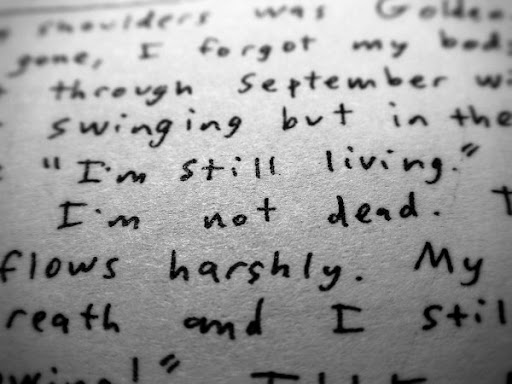 shoulders was Golden
gone, I forgot my body
through September wi
swinging but in the
"I'm still living."
I'm not dead. T
flows harshly. My
reath and I stil
wing!" I